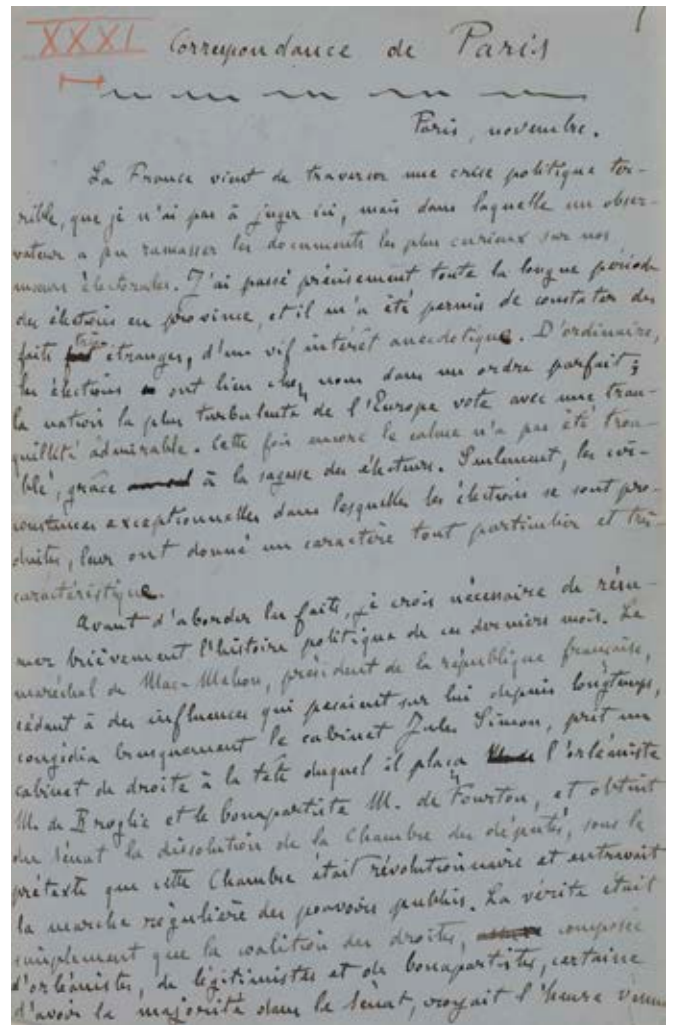 XXXI Correspondance de Paris
Paris, novembre.
La France vient de traverser une crise politique ter-
rible, que je n'ai pas à juger ici, mais dans laquelle un obser-
vateur a pu ramasser les documents les plus curieux sur nos
mœurs électorales. J'ai passé précisément toute la longue période
des élections en province, et il m'a été permis de constater des
faits très étranges, d'un vif intérêt anecdotique. D'ordinaire,
les élections ont lieu chez nous dans un ordre parfait ;
la nation la plus turbulente de l'Europe vote avec une tran-
quillité admirable. Cette fois encore le calme n'a pas été trou-
blé, grâce à la sagesse des électeurs. Seulement, les cir-
constances exceptionnelles dans lesquelles les élections se sont pro-
duites, leur ont donné un caractère tout particulier et très
caractéristique.
Avant d'aborder les faits, je crois nécessaire de résu-
mer brièvement l'histoire politique de ces derniers mois. Le
maréchal de Mac-Mahon, président de la république française,
cédant à des influences qui pesaient sur lui depuis longtemps,
congédia brusquement le cabinet Jules Simon, prit un
cabinet de droite à la tête duquel il plaça l'orléaniste
M. de Broglie et le bonapartiste M. de Fourtou, et obtint
du Sénat la dissolution de la Chambre des députés, sous le
prétexte que cette Chambre était révolutionnaire et entravait
la marche régulière des pouvoirs publics. La vérité était
simplement que la coalition des droites, composée
d'orléanistes, de légitimistes et de bonapartistes, certaine
d'avoir la majorité dans le Sénat, croyait l'heure venue